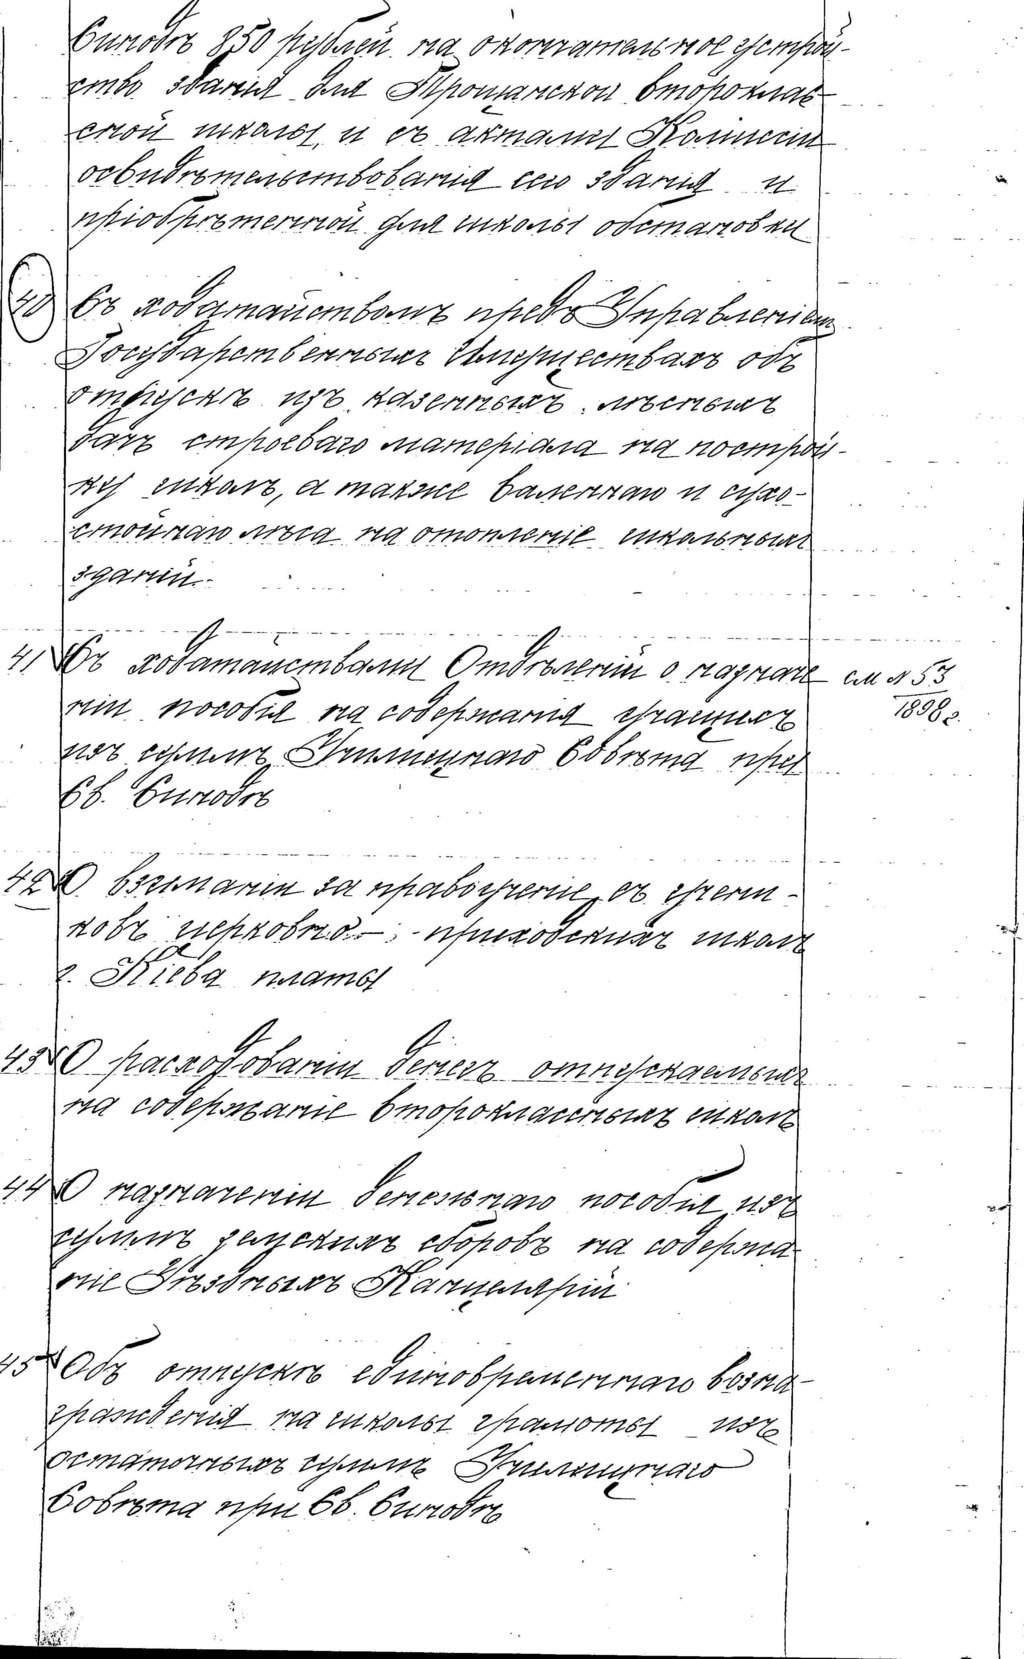 Синодѣ 850 рублей на окончательное устрой-
ство зданія для Трощанской второклас-
сной школы, и съ актами Комиссіи
освидѣтельствованія сего зданія и
пріобрѣтенной для школы обстановки
40 Съ ходатайствомъ предъ Управленіемъ
Государственныхъ Имуществахъ объ
отпускѣ изъ казенныхъ лѣсныхъ
дачъ строеваго матеріала на построй-
ку школъ, а также валеннаго и сухо-
стойнаго лѣса на отопленіе школьныхъ
зданій.
41 Съ ходатайствами Отдѣленій о назначе см № 53
ніи пособія на содержанія учащихъ 1898 г.
изъ суммъ Училищнаго Совѣта при
Св. Синодѣ
42 О взиманіи за правоученіе съ учени-
ковъ церковно-приходскихъ школъ
г. Кіева платы
43 О расходованіи денегъ отпускаемыхъ
на содержаніе второклассныхъ школъ
44 О назначеніи денежнаго пособія изъ
суммъ земскихъ сборовъ на содержа
ніе Уѣздныхъ Канцелярій
45 Объ отпускѣ единовременнаго возна-
гражденія на школы грамоты изъ
остаточныхъ суммъ Училищнаго
Совѣта при Св. Синодѣ